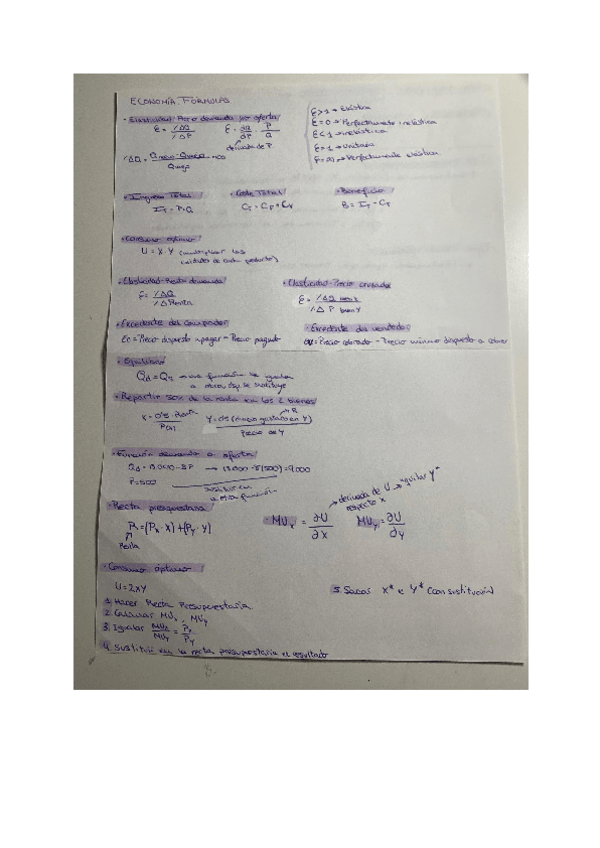 ECONOMÍA. FÓRMULAS
· Elasticidad-Precio demanda y/o oferta
E = %ΔQ / %ΔP    E = ∂Q/∂P · P/Q
derivada de P
E>1 → Elástica
E=0 → Perfectamente inelástica
E<1 → inelástica
E=1 → Unitaria
E=∞ → Perfectamente elástica
%ΔQ = ·100
· Ingreso Total    · Coste Total    · Beneficio
IT = P·Q    CT = CF + CV    B = IT - CT
· Consumo óptimo
U = X·Y (multiplicar las
cantidades de cada producto)
· Elasticidad-Renta demanda    · Elasticidad-Precio cruzada
E = %ΔQ / %ΔRenta    E = %ΔQ bien X / %ΔP bien Y
· Excedente del comprador    · Excedente del vendedor
Ec = Precio dispuesto a pagar - Precio pagado    = Precio cobrado - Precio mínimo dispuesto a cobrar
· Equilibrio
Qd = Qs → las función se igualan
o sustituye
· Repartir 50% de la renta en los 2 bienes
X = 0'5·Renta / P(x)    Y = 0'5 (gastado en Y) / Precio de Y
R
· Función demanda o oferta
Qd = 13.000 - 8P → 13.000 - 8(500) = 9.000
P = 500
sustituir en
la función
· Recta presupuestaria
R = (Px · X) + (Py · Y)
Renta
· MUx = ∂U/∂X    MUy = ∂U/∂y
→ derivada de U → "igual Y"
respecto X
· Consumo óptimo
U = 2XY
1. Hacer Recta Presupuestaria
2. Calcular MUx y MUy
3. Igualar MUx/MUy = Px/Py
4. Sustituir en la recta presupuestaria el resultado
5. Sacas X* e Y* (con sustitución)